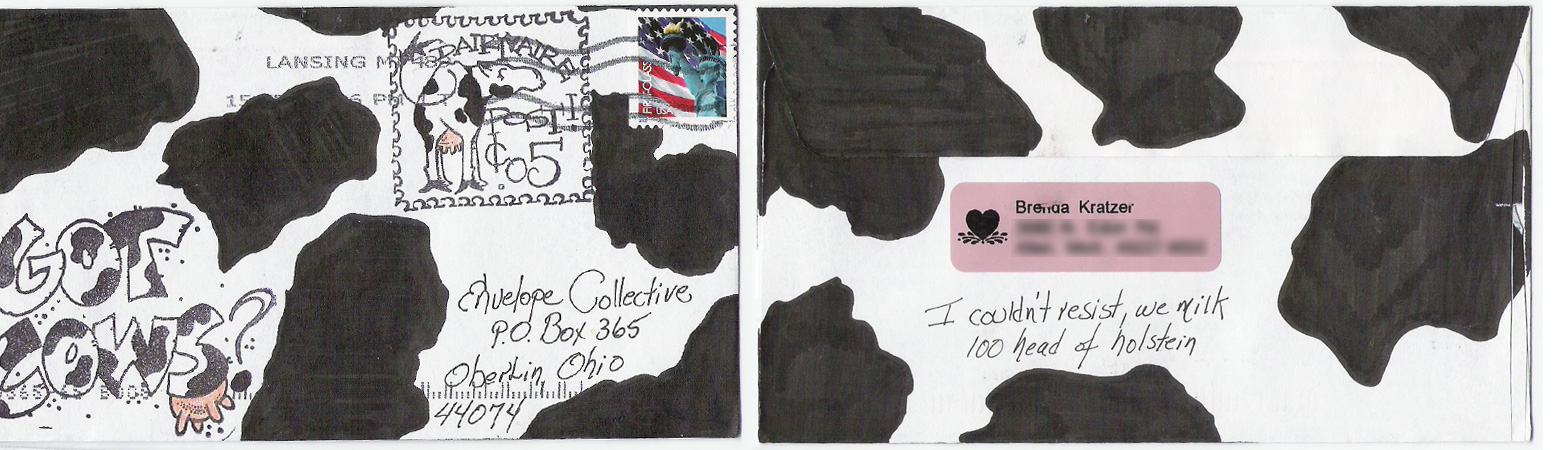 LANSING MI 48
DAIRYAIRE
POST
¢.05
FIRST-CLASS
USA
GOT
COWS?
Envelope Collective
P.O. Box 365
Oberlin, Ohio
44074
Brenda Kratzer
I couldn't resist, we milk
100 head of holstein